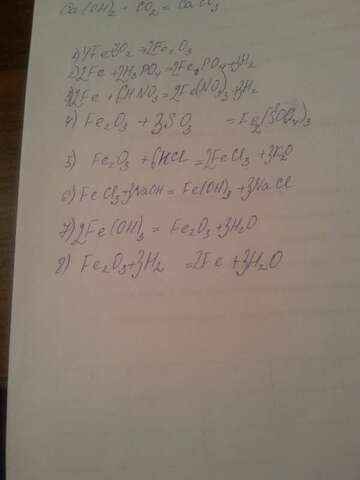 Ca(OH)2 + CO2 = CaCO3
1) 4Fe+3O2 = 2Fe2O3
2) 2Fe + 2H3PO4 = 2Fe3PO4 + 3H2
3) 2Fe + 6HNO3 = 2Fe(NO3)3 + 3H2
4) Fe2O3 + 3SO3 = Fe2(SO4)3
5) Fe2O3 + 6HCl = 2FeCl3 + 3H2O
6) FeCl3 + 3NaOH = Fe(OH)3 + 3NaCl
7) 2Fe(OH)3 = Fe2O3 + 3H2O
8) Fe2O3 + 3H2 = 2Fe + 3H2O